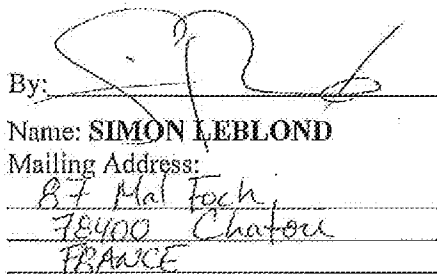 By:
Name: SIMON LEBLOND
Mailing Address:
87 Mal Foch,
78400 Chatou
FRANCE